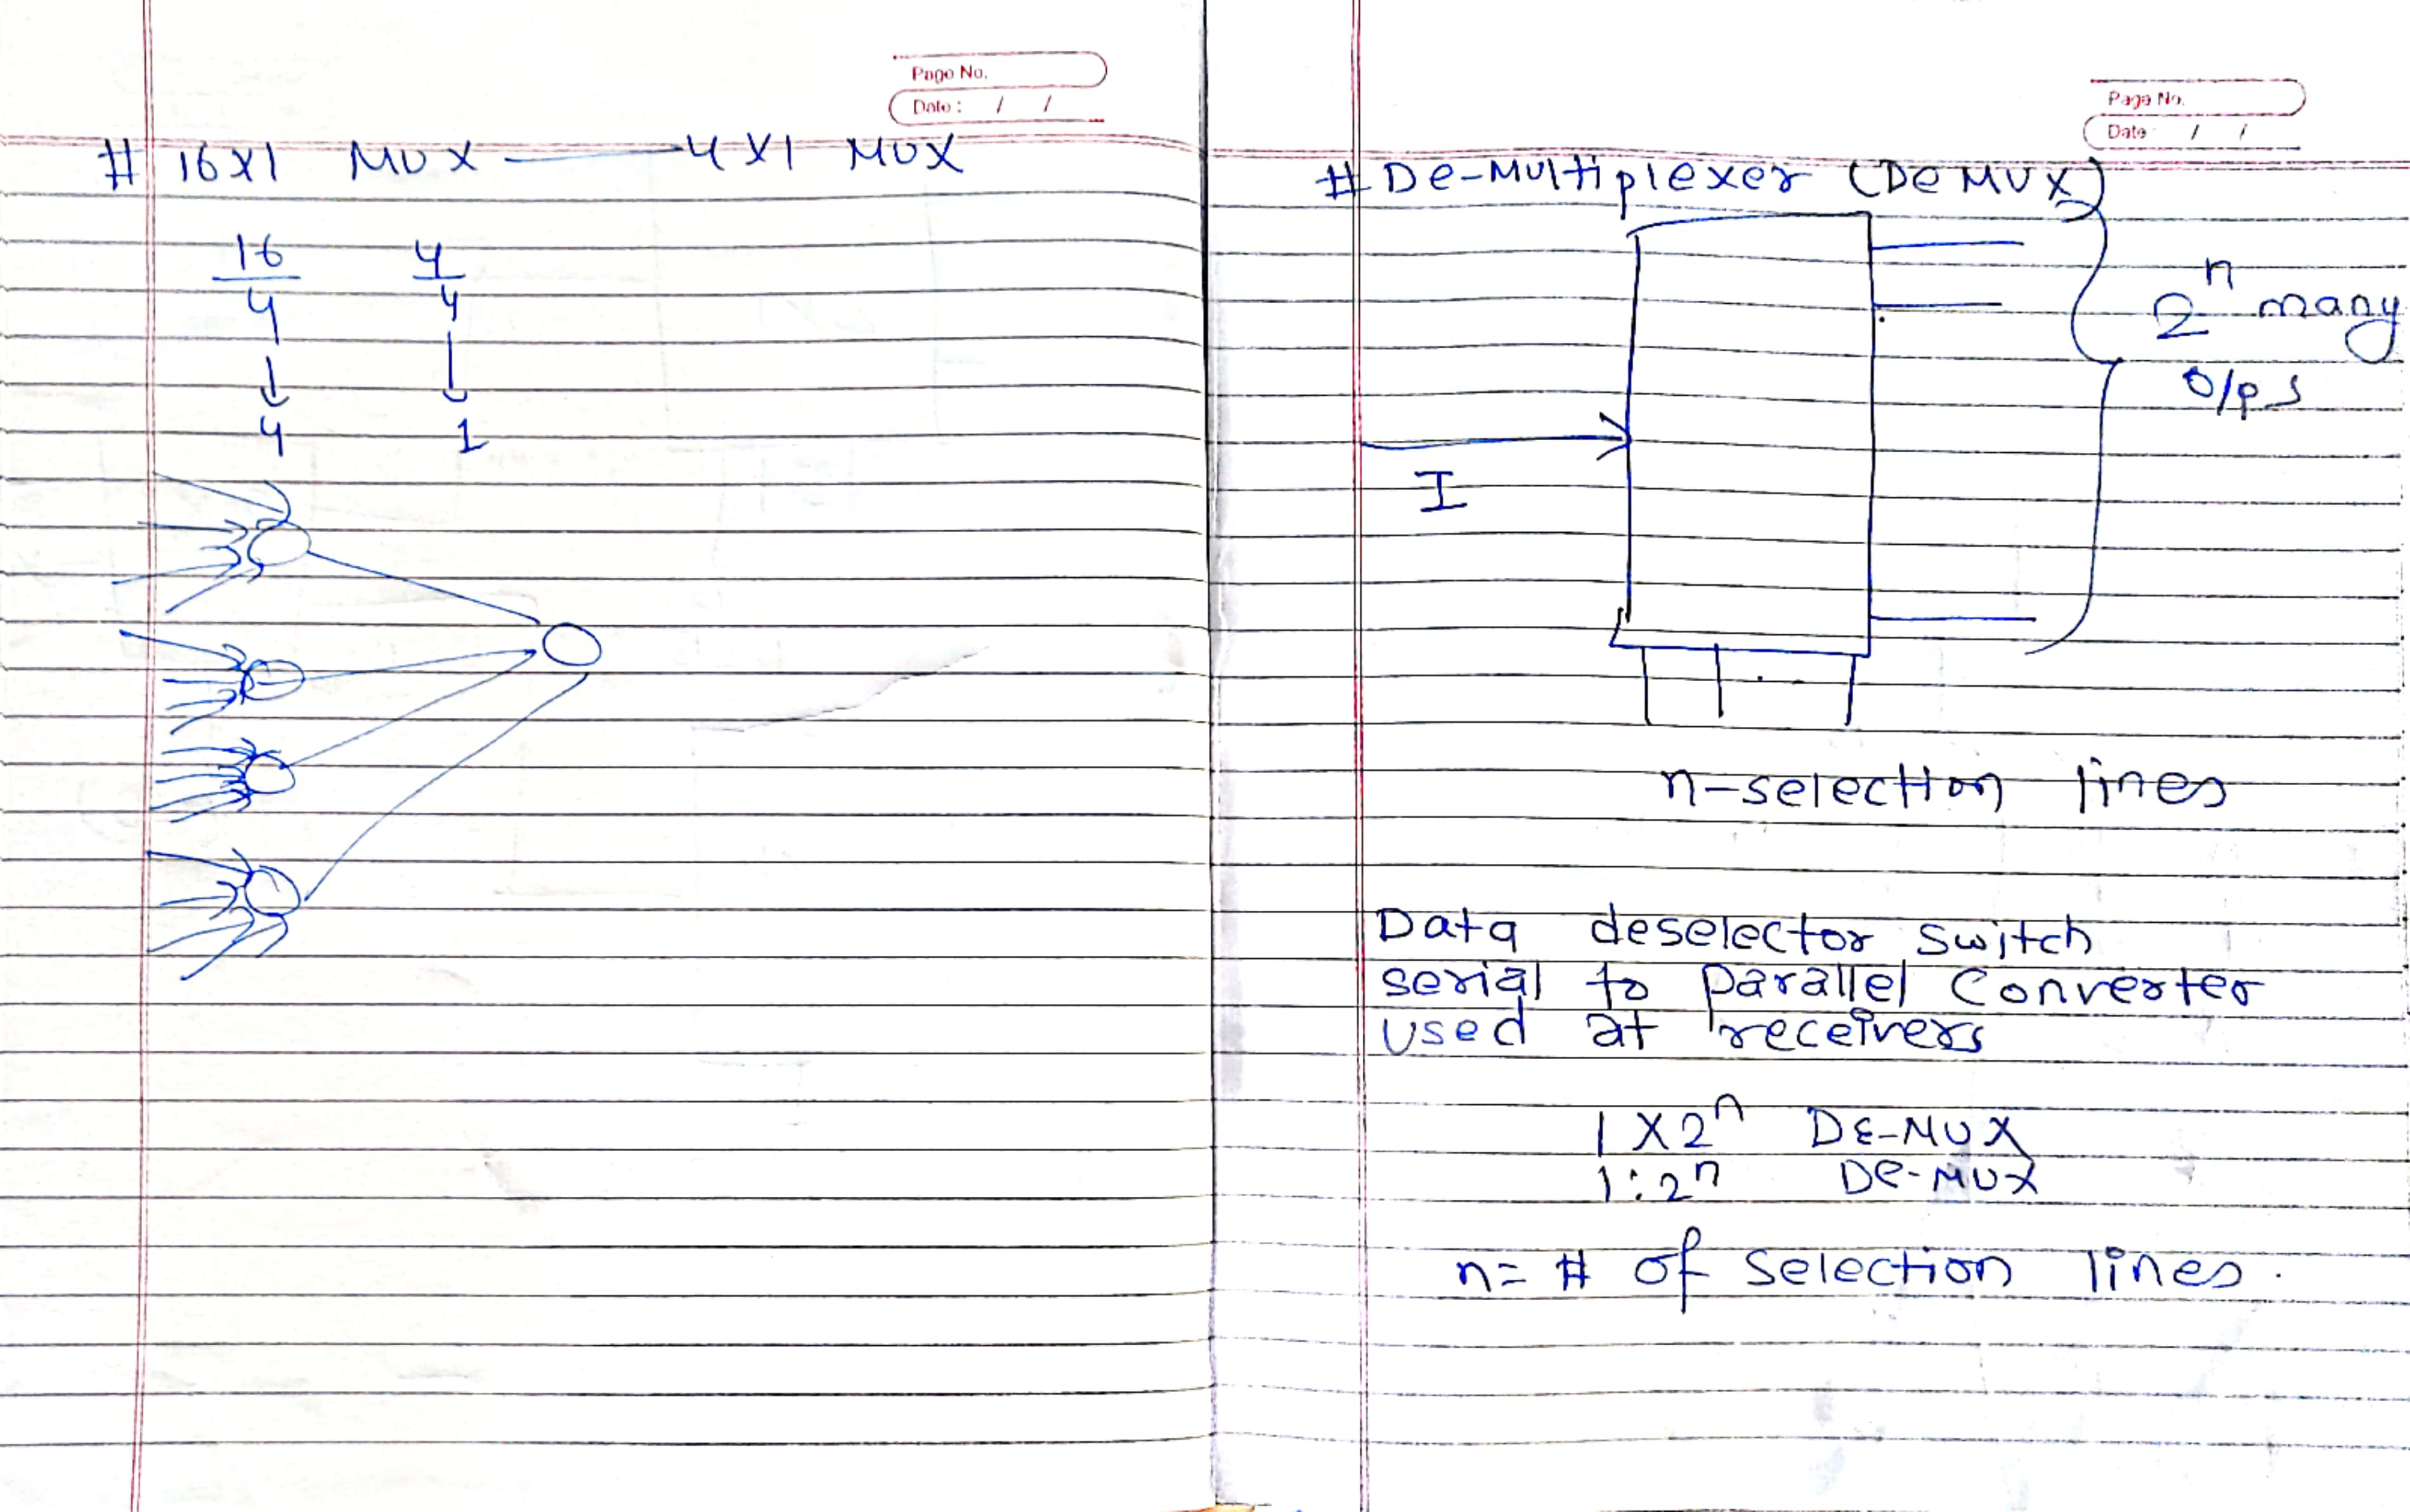 Page No.
Date : / /
# 16X1 MUX — 4X1 MUX
16 4
4 4
4 1
Page No.
Date / /
# De-Multiplexer (DeMUX)
2^n many
o/ps
I
n-selection lines
Data deselector switch
serial to parallel Converter
used at receivers
1 X 2^n DE-MUX
1:2^n De-MUX
n= # of selection lines.